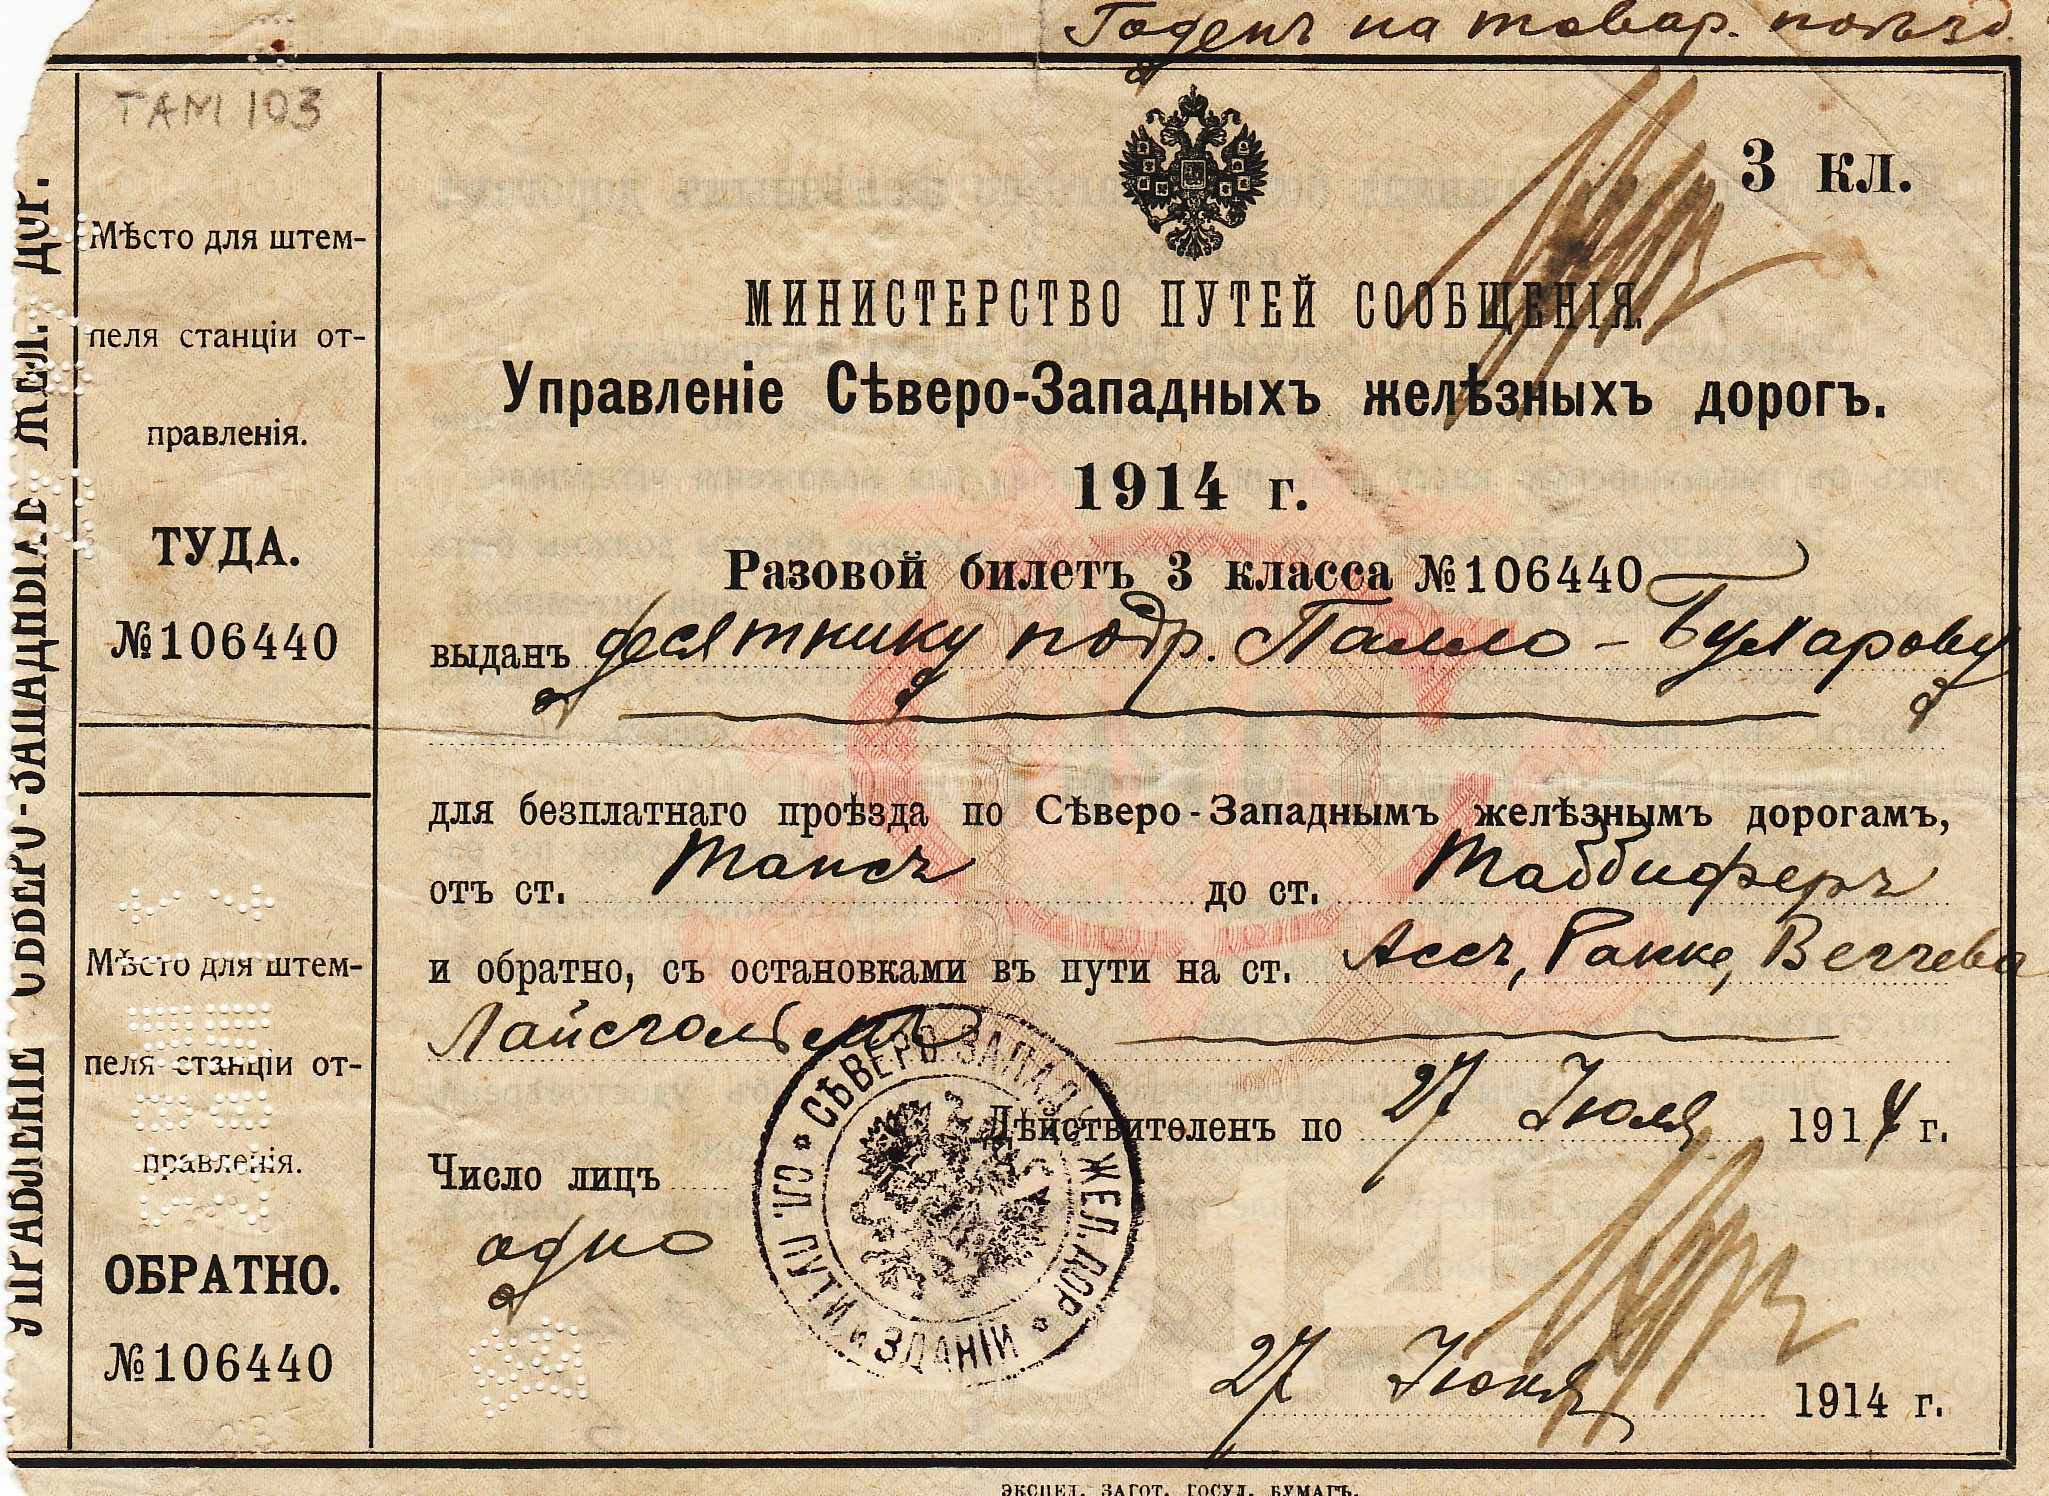 Годенъ на товар. поѣзд.
ТАМ 103
3 КЛ.
МИНИСТЕРСТВО ПУТЕЙ СООБЩЕНІЯ.
Управленіе Сѣверо-Западныхъ желѣзныхъ дорогъ.
1914 г.
Разовой билетъ 3 класса №106440
выданъ десятнику подр. Палло - Бухарову
для безплатнаго проѣзда по Сѣверо-Западнымъ желѣзнымъ дорогамъ,
отъ ст. Тапсъ до ст. Таббиферъ
и обратно, съ остановками въ пути на ст. Ассъ, Ракке,
Лайсгольмъ
Дѣйствителенъ по 27 Іюля 1914 г.
Число лицъ
одно
27 Іюня 1914 г.
СѢВЕРО-ЗАПАДН. ЖЕЛ. ДОР. * СЛ. ПУТИ и ЗДАНІЙ *
Мѣсто для штем-
пеля станціи от-
правленія.
ТУДА.
№106440
Мѣсто для штем-
пеля станціи от-
правленія.
ОБРАТНО.
№106440
УПРАВЛЕНІЕ СѢВЕРО-ЗАПАДНЫХЪ ЖЕЛ. ДОР.
ЭКСПЕД. ЗАГОТ. ГОСУД. БУМАГЪ.